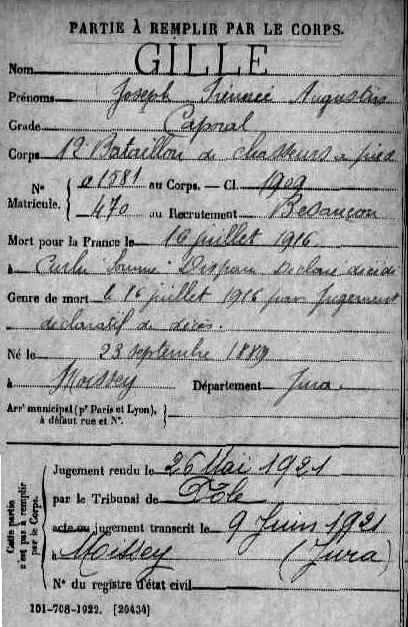 PARTIE À REMPLIR PAR LE CORPS.
Nom GILLE
Prénoms Joseph Augustin
Grade Caporal
Corps 12 Bataillon de chasseurs à pied
N° Matricule. { 01581 au Corps. — Cl. 1909
470 au Recrutement Besançon
Mort pour la France le 16 juillet 1916
à Curlu Somme Disparu Déclaré décédé
Genre de mort le 16 juillet 1916 par Jugement
déclaratif de décès.
Né le 23 septembre 1889
à Moissey Département Jura.
Arrt municipal (pr Paris et Lyon), à défaut rue et N°. }
Cette partie n'est pas à remplir par le Corps.
Jugement rendu le 26 Mai 1921
par le Tribunal de Dôle
acte ou jugement transcrit le 9 Juin 1921
à Moissey (Jura)
N° du registre d'état civil
101-708-1922. [26434]